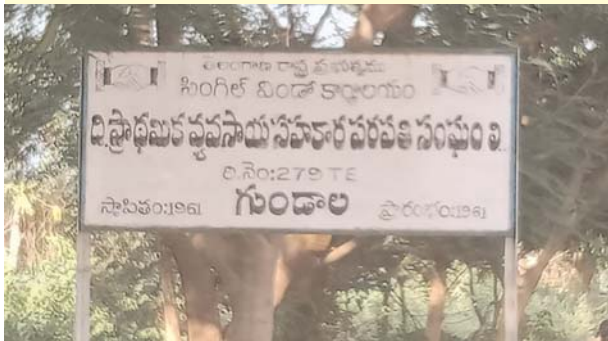 తెలంగాణ రాష్ట్ర ప్రభుత్వము
సింగిల్ విండో కార్యాలయం
ది.ప్రాథమిక వ్యవసాయ సహకార పరపతి సంఘం లి..
రి.నెం:279 TE
గుండాల
స్థాపితం:1961 ప్రారంభం:1961